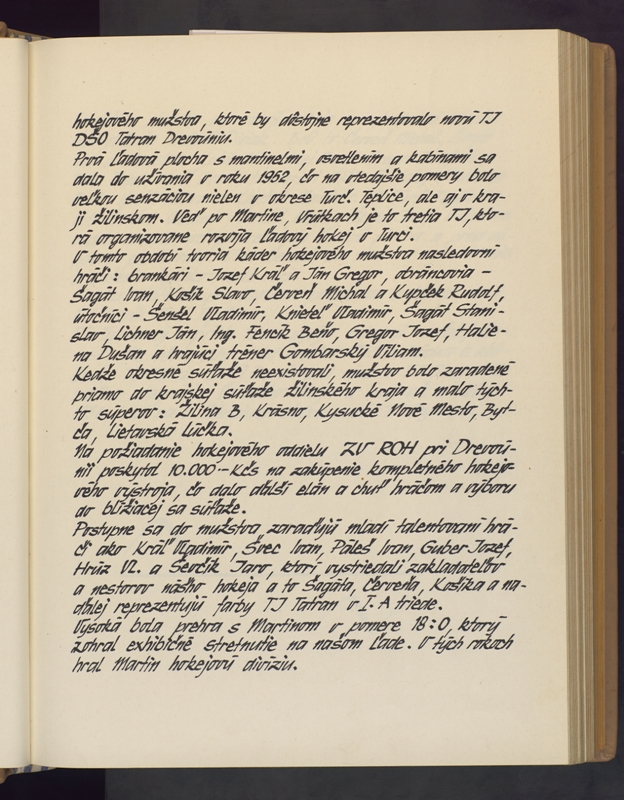 hokejového mužstva, ktoré by dôstojne reprezentovalo novú TJ
DŠO Tatran Drevoúniu.
Prvá ľadová plocha s mantinelmi, osvetlením a kabínami sa
dala do užívania v roku 1952, čo na vtedajšie pomery bolo
veľkou senzáciou nielen v okrese Turč. Teplice, ale aj v kra-
ji Žilinskom. Veď po Martine, Vrútkach je to tretia TJ, kto-
rá organizovane rozvíja ľadový hokej v Turci.
V tomto období tvoria káder hokejového mužstva nasledovní
hráči: brankári - Jozef Kráľ a Ján Gregor, obráncovia -
Šagát Ivan, Košík Slavo, Červeň Michal a Kupček Rudolf,
útočníci - Šenšel Vladimír, Knieteľ Vladimír, Šagát Stani-
slav, Lichner Ján, Ing. Fencík Beňo, Gregor Jozef, Halie-
na Dušan a hrajúci tréner Gombarský Viliam.
Kedže okresné súťaže neexistovali, mužstvo bolo zaradené
priamo do krajskej súťaže žilinského kraja a malo tých-
to súperov: Žilina B, Krásno, Kysucké Nové Mesto, Byt-
ča, Lietavská Lúčka.
Na požiadanie hokejového oddielu ZV ROH pri Drevoú-
nii poskytol 10.000.- Kčs na zakúpenie kompletného hokejo-
vého výstroja, čo dalo ďalší elán a chuť hráčom a výboru
do blížiacej sa súťaže.
Postupne sa do mužstva zaraďujú mladí talentovaní hrá-
či ako Kráľ Vladimír, Švec Ivan, Paleš Ivan, Guber Jozef,
Hrúz Vl. a Ševčík Jaro, ktorí vystriedali zakladateľov
a nestorov nášho hokeja a to Šagáta, Červeňa, Košíka a na-
ďalej reprezentujú farby TJ Tatran v I. A triede.
Vysoká bola prehra s Martinom v pomere 18:0, ktorý
zohral exhibičné stretnutie na našom ľade. V tých rokoch
hral Martin hokejovú divíziu.